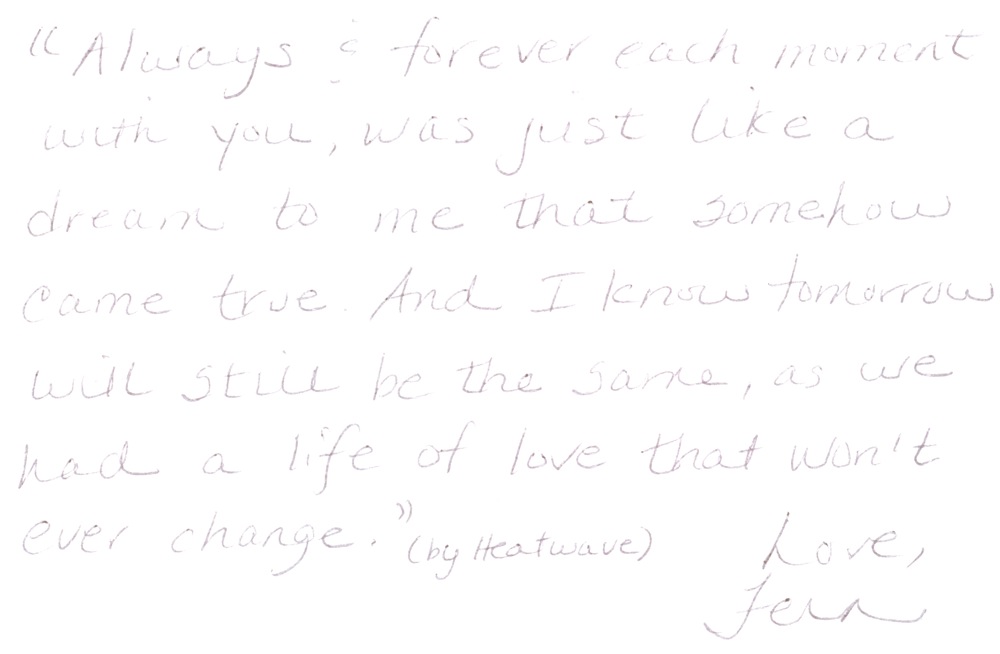 "Always & forever each moment
with you, was just like a
dream to me that somehow
came true. And I know tomorrow
will still be the same, as we
had a life of love that won't
ever change." (by Heatwave) Love,
Fern